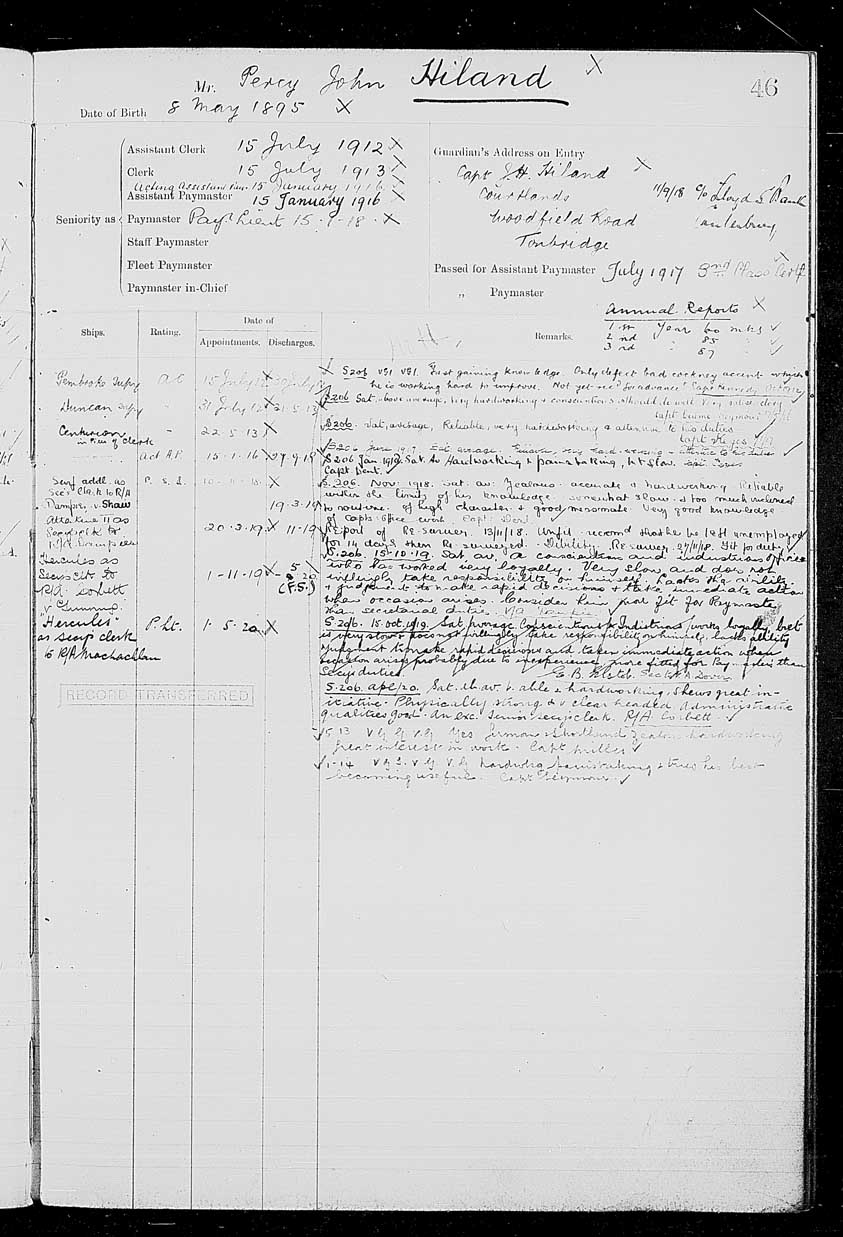 46
Mr. Percy John Hiland X
Date of Birth 8 May 1895 X
Assistant Clerk 15 July 1912 X
Clerk 15 July 1913 X
Acting Assistant Pay. 15 January 1916 X
Assistant Paymaster 15 January 1916 X
Seniority as Paymaster Payr Lieut 15.7.18. X
Staff Paymaster
Fleet Paymaster
Paymaster in-Chief
Guardian's Address on Entry X
Capt J.H. Hiland
Courtlands
Woodfield Road
Tonbridge
11/9/18 c/o Lloyds Bank
Canterbury
Passed for Assistant Paymaster July 1917 3rd Class Certif. X
„ Paymaster
Annual Reports X
1st Year 60 mks ✓
2nd 85 ✓
3rd 87 ✓
Ships. Rating. Date of Remarks.
Appointments. Discharges.
Pembroke Supy A C 15 July 12 X
Duncan Supy - 31 July 12 X 21.5.13
Centurion - 22.5.13 X
in lieu of Clerk
Act A.P. 15.1.16 X 27.9.18
Secy addl. as P.S.L. 10.11.18 X
Secy's Clerk to R/A 19.3.19
Dampier v. Shaw
Attentive II as 20.3.19. X 11.19
Secy's Clk to
R/A Dampier
Hercules as
Secy's Clk to 1-11-19 X
R/A Corbett (P.S.)
v Chummo.
"Hercules" P.Lt. 1.5.20 X
as Secy's clerk
to R/A Maclachlan
RECORD TRANSFERRED
X S206 VG1 VG1. Fast gaining knowledge. Only defect bad cockney accent which
he is working hard to improve. Not yet rec'd for advancet Capt Kennedy
S206 Sat. above average, very hardworking & conscientious should do well.
Capt Seymour
S206. Sat, average, Reliable, very hardworking & attentive to his duties
Capt Keyes
S206 June 1917 Sat. average. very hard-working attentive to his duties
S206 Jan 1918. Sat. Av Hardworking & painstaking, bit slow
Capt Dent. ✓
S.206. Nov. 1918. Sat. av: Zealous: accurate & hardworking. Reliable
within the limits of his knowledge. Somewhat slow & too much inclined
to routine. Of high character & good messmate. Very good knowledge
of Capts Office work. Capt. Dent
Report of Re survey. 13/11/18. Unfit. recomd that he be left unemployed
for 14 days then Re-surveyed. Debility. Re survey 27/11/18. Fit for duty ✓
S.206. 15-10-19. Sat av. A conscientious and industrious officer
who has worked very loyally. Very slow and does not
willingly take responsibility on himself. Lacks the ability
& judgement to make rapid decisions & take immediate action
when occasion arises. Consider him more fit for Paymaster
than secretarial duties.
S.206. 15.Oct.19. Sat, average. Conscientious & Industrious, works loyally but
is very slow & does not willingly take responsibility on himself, lacks ability &
judgment to make rapid decisions and taken immediate action when
occasion arises, probably due to inexperience, more fitted for Pay. duties than
Secy's duties. Secy R/A Dover
S.206. Apl/20. Sat. Ab. av. v. able & hardworking, shews great in-
itiative. Physically strong & v clear headed. Administrative
qualities good. An exc. Senior secy's clerk. R/A Corbett ✓
5.13 VG VG VG Yes German & Shorthand Zealous hardworking
great interest in work. Capt Miller ✓
1-14 VG I. VG VG hardwkg painstaking & tries his best
becoming useful. Capt Seymour ✓